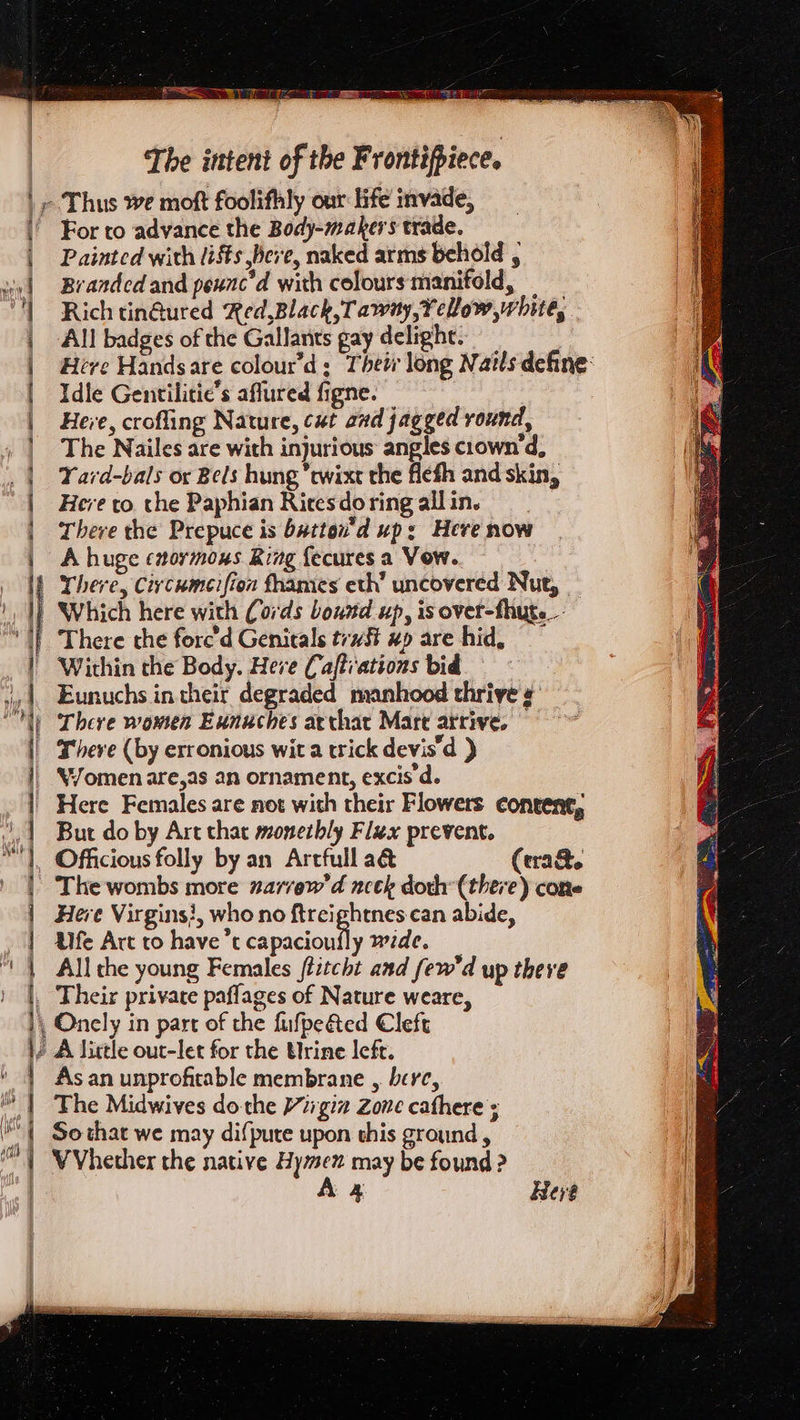 The intent of the Frontiſpiece.
Thus we moſt fooliſhly our life invade,
For to advance the Body-makers trade.
Painted with liſts, here, naked arms behold,
Branded and pounc'd with colours manifold,
Rich tinctured Red, Black, Tawny, Yellow, white,
All badges of the Gallants gay delight.
Here Hands are colour'd; Their long Nails define
Idle Gentilitie's aſſured ſigne.
Here, croſſing Nature, cut and jagged round,
The Nailes are with injurious angles crown'd,
Yard-bals or Bels hung 'twixt the fleſh and skin,
Here to the Paphian Rites do ring all in.
There the Prepuce is button'd up: Here now
A huge enormous Ring ſecures a Vow.
There, Circumciſion ſhames eth' uncovered Nut,
Which here with Cords bound up, is over-ſhut.
There the forc'd Genitals truſt up are hid,
Within the Body. Here Caſtrations bid
Eunuchs in their degraded manhood thrive:
There women Eunuches at that Mart arrive.
There (by erronious wit a trick devis'd)
Women are, as an ornament, excis'd.
Here Females are not with their Flowers content,
But do by Art that monethly Flux prevent.
Officious folly by an Artfull act (tract.
The wombs more narrow'd neck doth (there) con-
Here Virgins!, who no ſtreightnes can abide,
Uſe Art to have 't capaciouſly wide.
All the young Females ſtitcht and ſew'd up there
Their private paſſages of Nature weare,
Onely in part of the ſuſpected Cleft
A little out-let for the Urine left.
As an unprofitable membrane, here,
The Midwives do the Virgin Zone caſhere;
So that we may diſpute upon this ground,
VVhether the native Hymen may be found?
A 4 Here